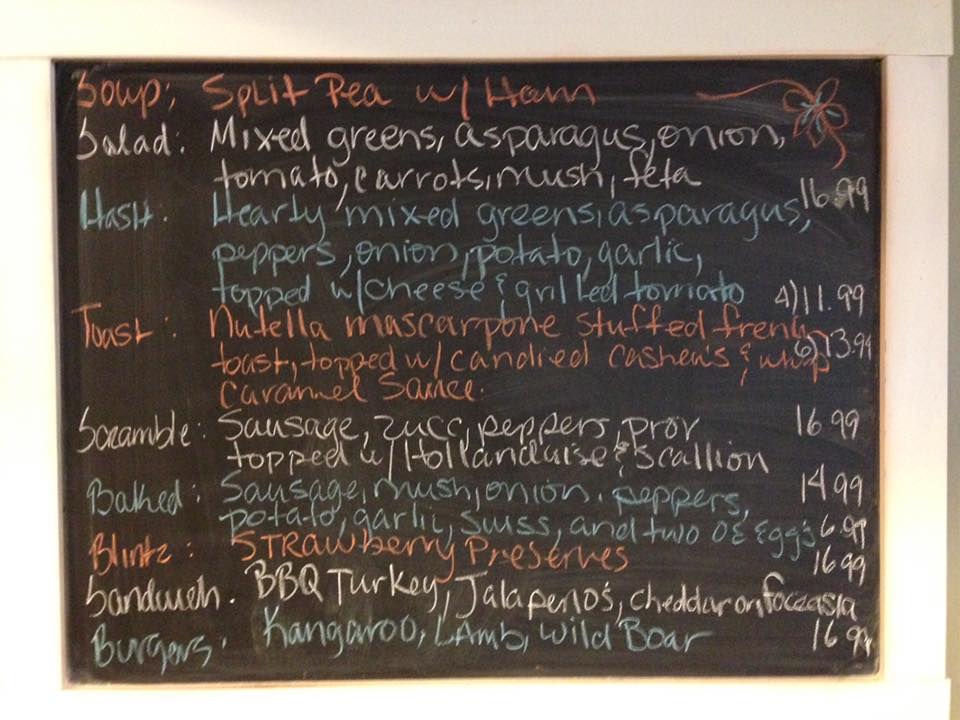 Soup: Split Pea w/ Ham
Salad: Mixed greens, asparagus, onion,
tomato, carrots, mush, feta 16.99
Hash: Hearty mixed greens, asparagus,
peppers, onion, potato, garlic,
topped w/cheese & grilled tomato 4) 11.99
Toast: Nutella mascarpone stuffed french 6) 13.99
toast, topped w/ candied cashew's & whip
Caramel Sauce.
Scramble: Sausage, zucc, peppers, prov 16.99
topped w/ Hollandaise & scallion
Baked: Sausage, mush, onion, peppers, 14.99
potato, garlic, swiss, and two OE Egg's 6.99
Blintz: STRAWberry Preserves 16.99
Sandwich. BBQ Turkey, Jalapeno's, cheddar on
Burgers: Kangaroo, LAmb, Wild Boar 16.99